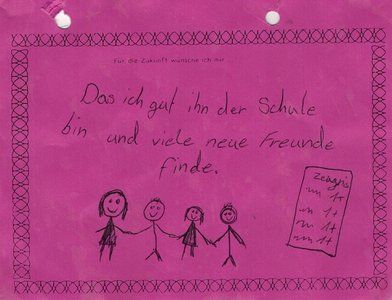 Für die Zukunft wünsche ich mir
Das ich gut ihn der Schule
bin und viele neue Freunde
finde.
Zeugnis
1+
1+
1+
1+